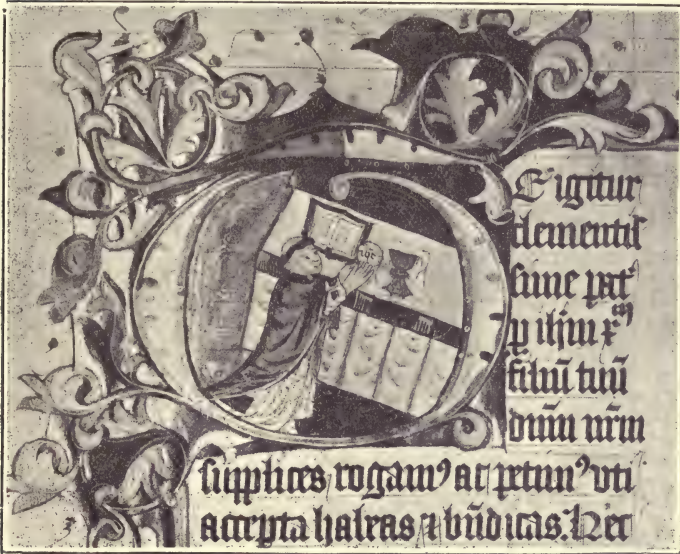 E igitur
clementis
sime pat
p ihm x͞m
filiū tuū
dnm nrm
supplices rogamꝰ ac petimꝰ vti
accepta habeas ⁊ bn̄dicas. Hec
ihc